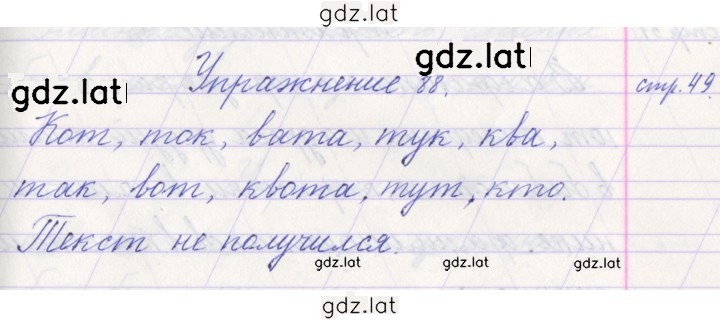 gdz.lat
Упражнение 88. стр. 49.
gdz.lat
Кот, ток, вата, тук, ква,
так, вот, квота, тут, кто.
Текст не получился.
gdz.lat gdz.lat gdz.lat
gdz.lat